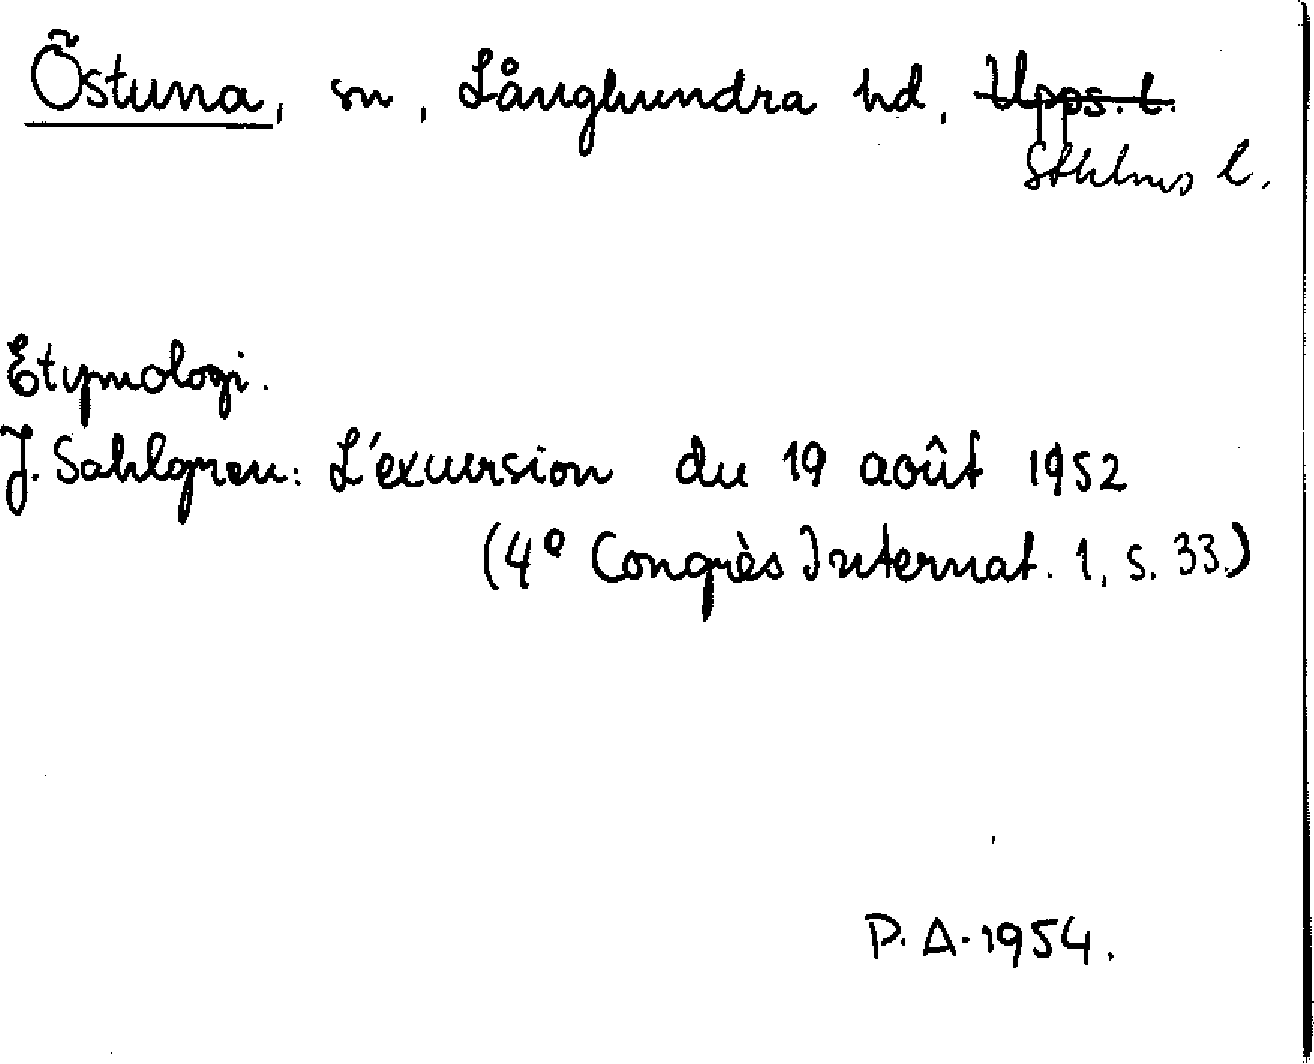 Östuna, sn, Långhundra hd, Upps. l.
Sthlms l.
Etymologi.
J. Sahlgren: L'excursion du 19 août 1952
(4e Congrès Internat. 1, s. 33.)
P. A. 1954.